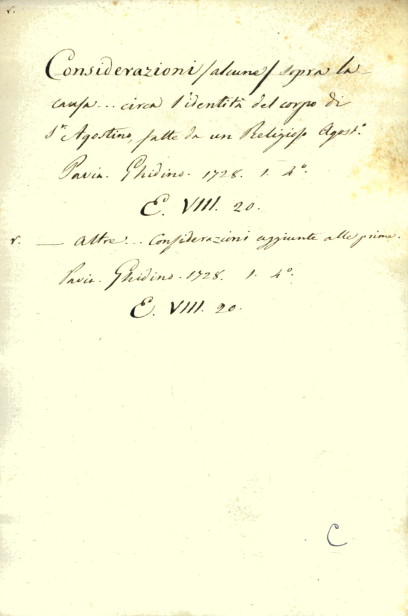 v.
Considerazioni /alcune/ sopra la
causa... circa l'identità del corpo di
S.ᵗ Agostino, fatte da un Religioso Agost.º
Pavia. Ghidino. 1728. 1. 4º.
E. VIII. 20.
v. — Altre... Considerazioni aggiunte alle prime.
Pavia. Ghidino. 1728. 1. 4º.
E. VIII. 20.
C